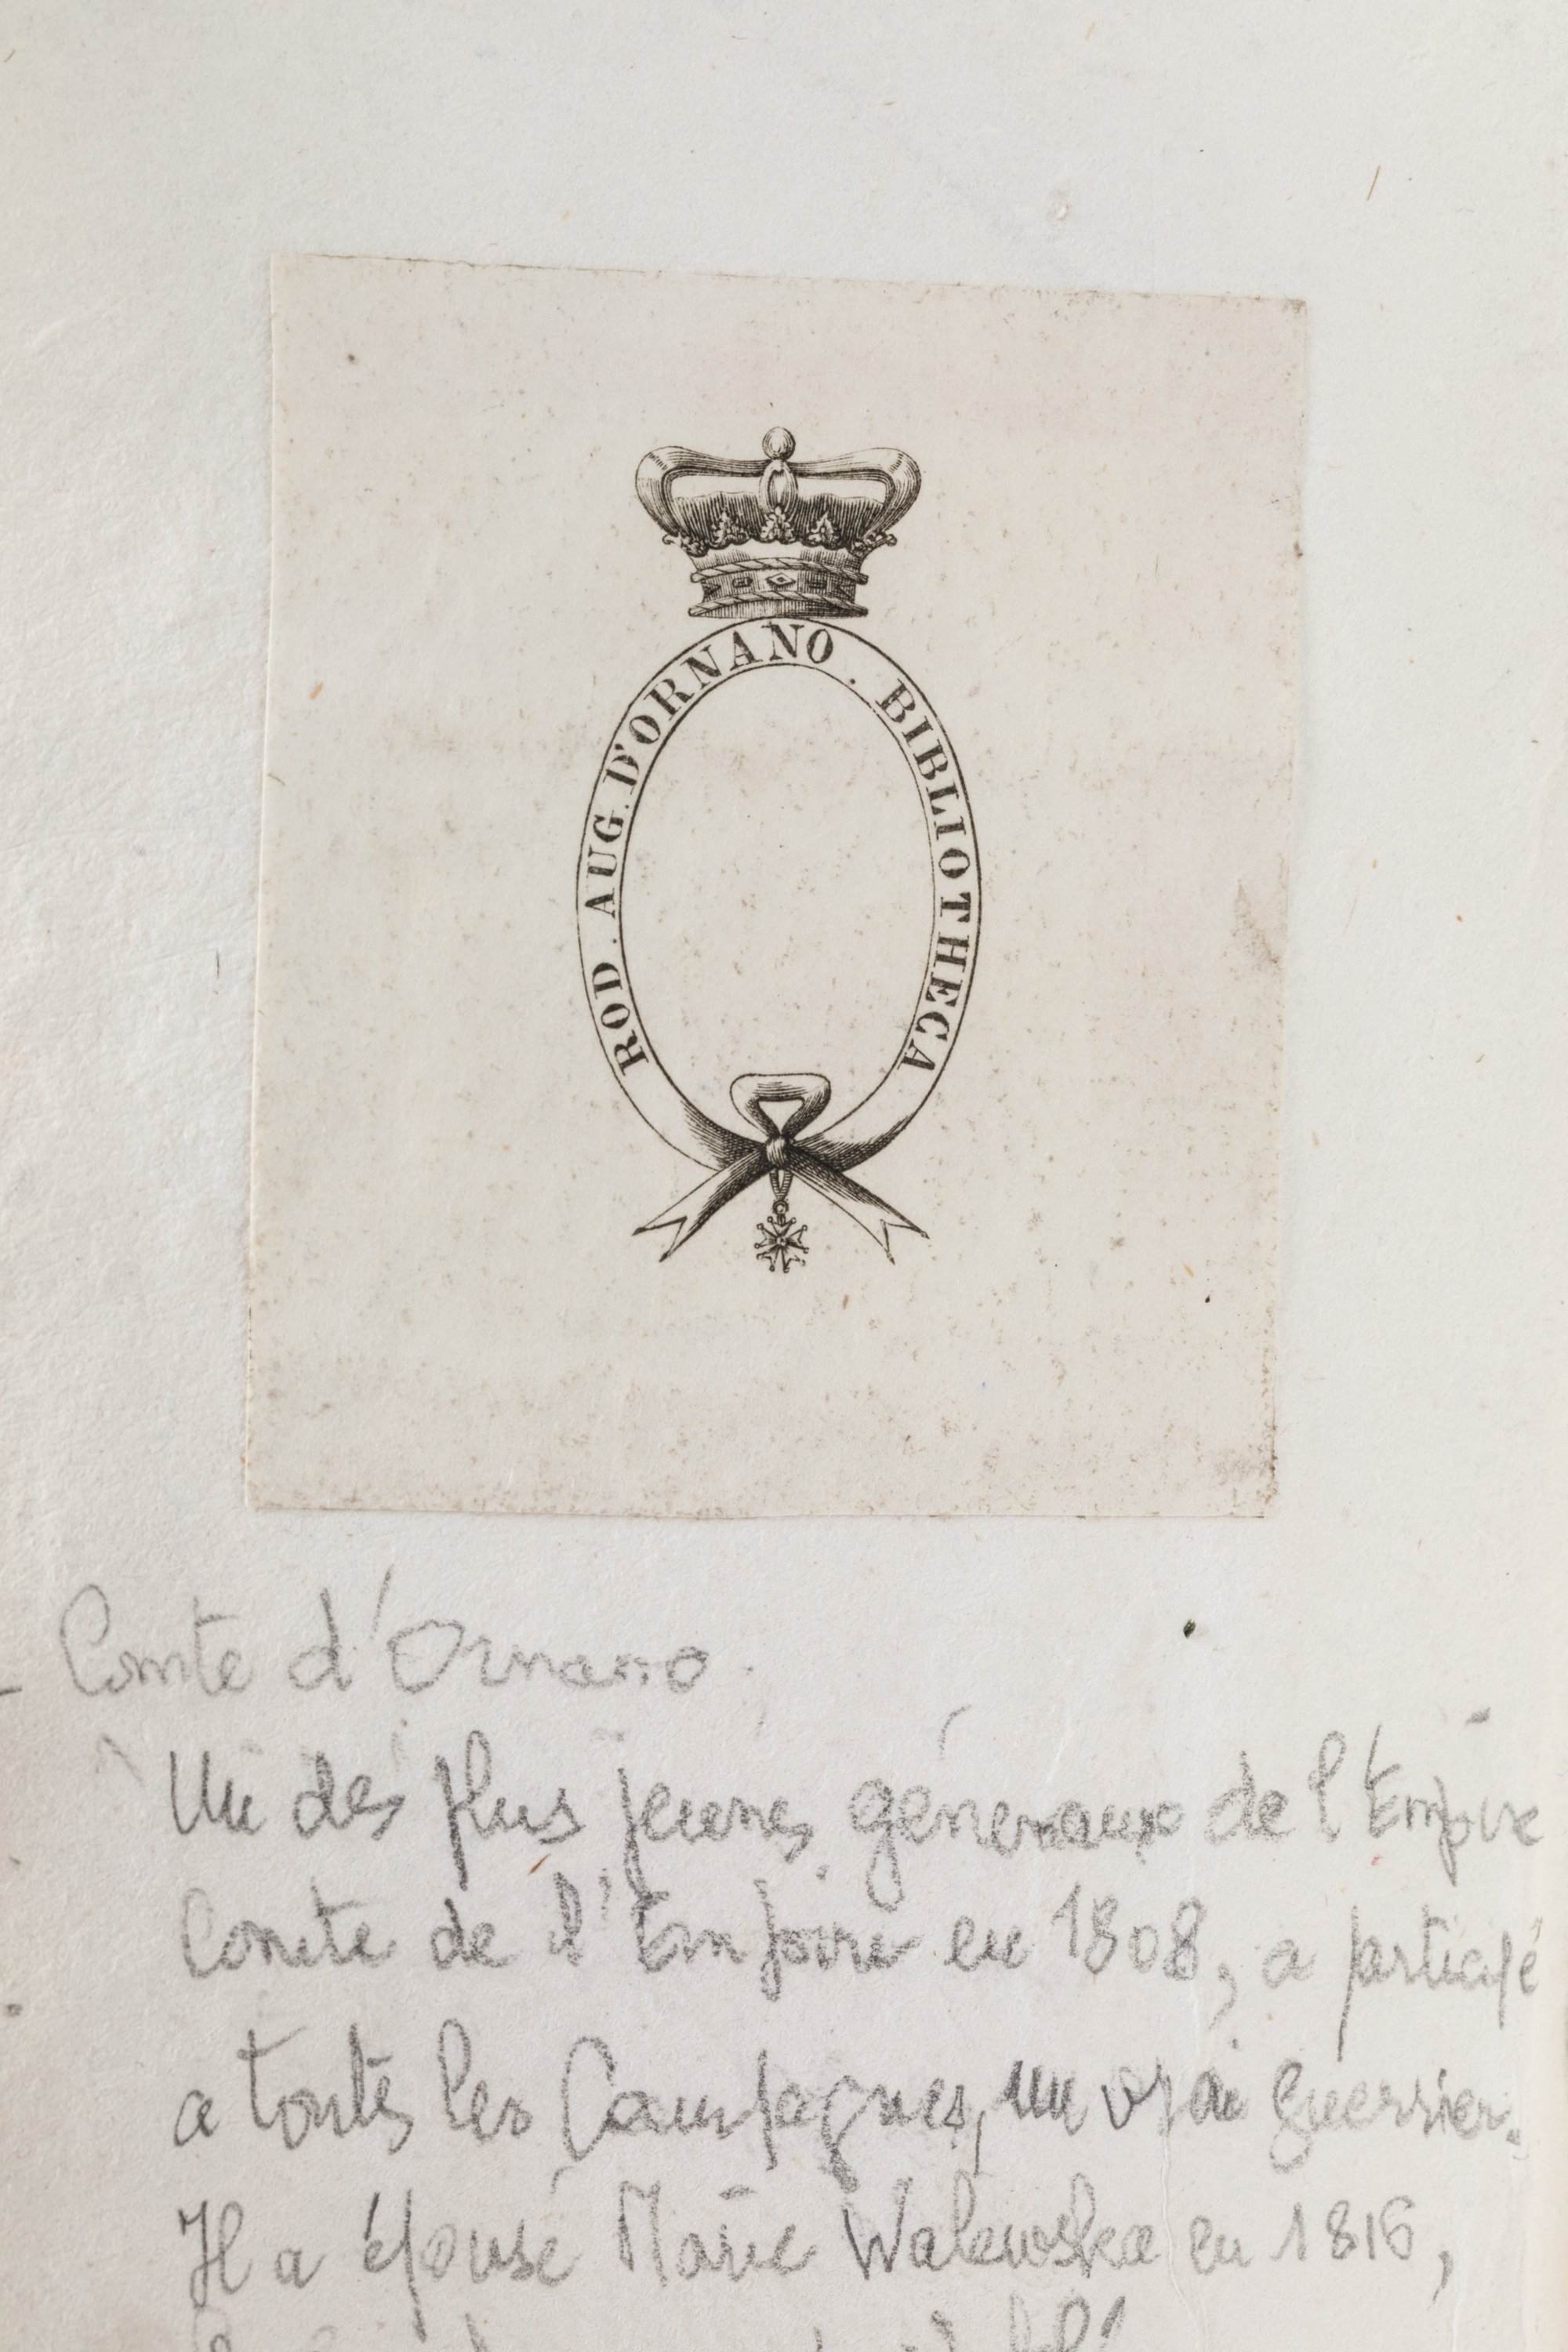 ROD. AUG. D'ORNANO. BIBLIOTHECA
- Comte d'Ornano.
Un des plus jeunes généraux de l'Empire
Comte de l'Empire en 1808, a participé
a toutes les Campagnes, un vrai guerrier.
Il a épousé Marie Walewska en 1816,